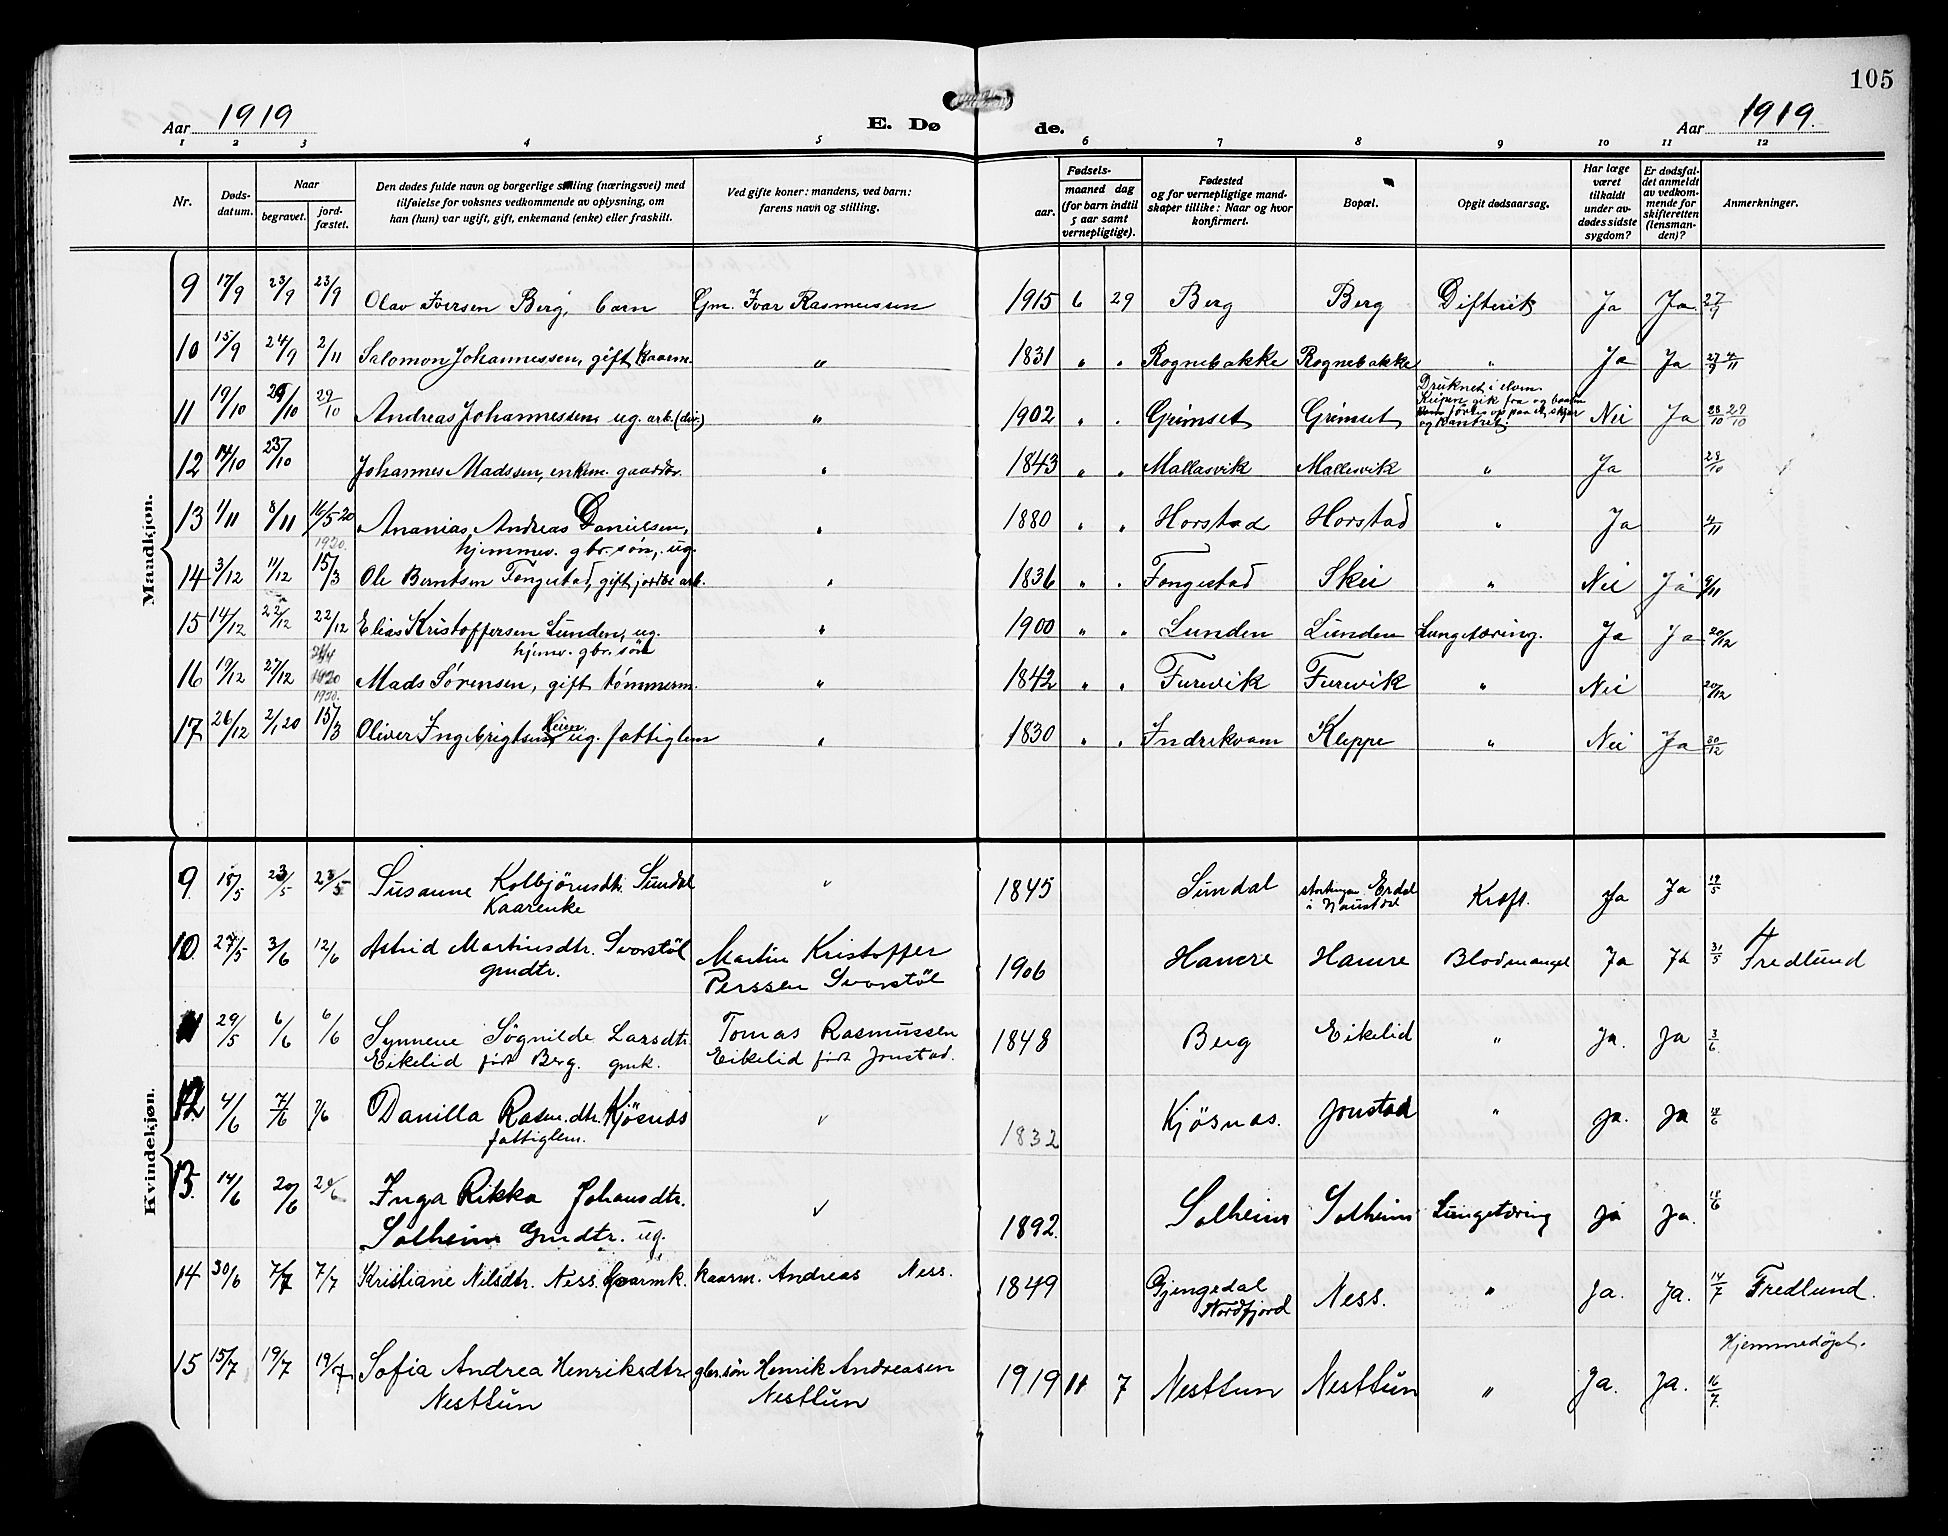 105
Aar 1919
E. Dø
de.
Aar 1919.
1 2 3 4 5 6 7 8 9 10 11 12
Nr.
Døds-
datum.
Naar
begravet.
jord-
fæstet.
Den dødes fulde navn og borgerlige stilling (næringsvei) med
tilføielse for voksnes vedkommende av oplysning, om
han (hun) var ugift, gift, enkemand (enke) eller fraskilt.
Ved gifte koner: mandens, ved barn:
farens navn og stilling.
Fødsels-
aar.
maaned dag
(for barn indtil
5 aar samt
vernepligtige).
Fødested
og for vernepligtige mand-
skaper tillike: Naar og hvor
konfirmert.
Bopæl.
Opgit dødsaarsag.
Har læge
været
tilkaldt
under av-
dødes sidste
sygdom?
Er dødsfal-
det anmeldt
av vedkom-
mende for
skifteretten
(lensman-
den)?
Anmerkninger.
Mandkjøn.
9 17/9 23/9 23/9 Olav Iversen Berg, barn Gm. Ivar Rasmussen 1915 6 29 Berg Berg Difterik Ja Ja 27/9
10 15/9 24/9 2/11 Salomon Johannessen, gift kaarm. " 1831 " " Rognebakke Rognebakke " Ja Ja 27/9 4/11
11 19/10 29/10 29/10 Andreas Johannessen, ug. arb. " 1902 " " Grimset Grimset Druknet i elven.
gik fra og baaten
førtes op paa et skjær
og kantret. Nei Ja 28/10 29/10
12 14/10 23/10 Johannes Madssen, enkem. gaardbr. " 1843 " " Mallasvik Mallasvik " Ja 28/10
13 1/11 8/11 16/5 20 Ananias Andreas Danielsen, " 1880 " " Horstad Horstad " Ja 4/11
hjemmev. gbr. søn, ug.
14 3/12 11/12 1920. 15/3 Ole Berntsen Fongestad, gift, jordbr arb. " 1836 " " Fongestad Skei " Nei Ja 9/11
15 14/12 22/12 22/12 Elias Kristoffersen Lunden, ug. " 1900 " " Lunden Lunden Lungetæring. Ja Ja 20/12
hjemv. gbr. søn
16 19/12 27/12 1920 Mads Sørensen, gift tømmerm. " 1842 " " Furevik Furevik " Nei 20/12
17 26/12 2/1 20 1920. 15/3 Oliver Ingebrigtsen ug. fattiglem " 1830 " " Indrekvam Kleppe " Nei Ja 30/12
Kvindekjøn.
9. 18/5 23/5 23/5 Susanne Kolbjørnsdtr. Sundal " 1845 Sundal Erdal
Kaarenke i Naustdal Kræft. Ja Ja 19/5
10 27/5 3/6 12/6 Astrid Martinsdtr. Svorstöl Martin Kristoffer
gmdtr. Perssen Svorstöl 1906 Hamre Hamre Blodmangel Ja Ja 31/5 Fredlund
11 29/5 6/6 6/6 Synneve Sögnilde Larsdtr. Tomas Rasmussen
Eikelid født Berg. gmk. Eikelid født Jonstad. 1848 Berg Eikelid " Ja. Ja 3/6
12. 4/6 7/6 7/6 Danilla Rasm.dtr. Kjösnäs
fattiglem. " 1832 Kjösnas. Jonstad " Ja. Ja 18/6
13. 14/6 20/6 20/6 Inga Rikka Johansdtr.
Solheim Gmdtr. ug. " 1892. Solheim Solheim Lungetæring Ja Ja. 18/6
14 30/6 7/7 7/7 Kristiane Nilsdtr. Ness. Kaarmk. kaarm. Andreas Ness. 1849 Gjengedal
Nordfjord Ness. " Ja. Ja. 14/7 Fredlund.
15 15/7 19/7 19/7 Sofia Andrea Henriksdtr. gbr. søn Henrik Andreasen
Nesttun Nesttun 1919 11 7 Nesttun Nesttun " Ja. Ja. 16/7 Hjemmedøpt.